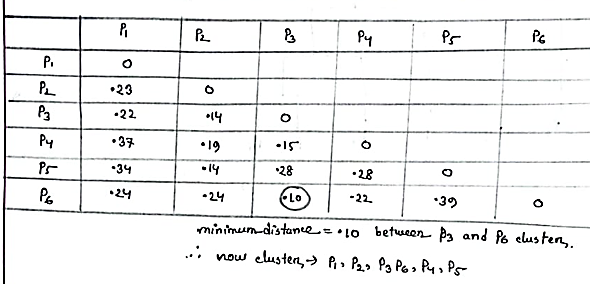 P1 P2 P3 P4 P5 P6
P1 0
P2 .23 0
P3 .22 .14 0
P4 .37 .19 .15 0
P5 .34 .14 .28 .28 0
P6 .24 .24 .10 .22 .39 0
minimum distance = .10 between P3 and P6 cluster.
∴ now cluster → P1, P2, P3 P6, P4, P5